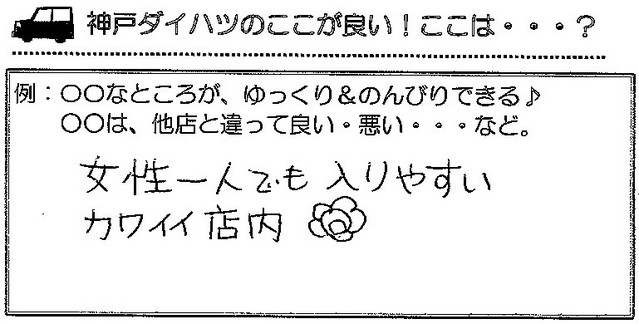 神戸ダイハツのここが良い！ここは・・・？
例：〇〇なところが、ゆっくり＆のんびりできる♪
〇〇は、他店と違って良い・悪い・・・など。
女性一人でも入りやすい
カワイイ店内